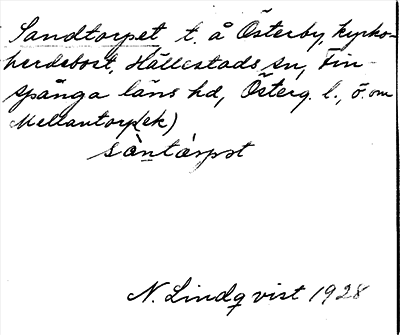 Sandtorpet t. å Österby, kyrko-
herdebost, Hällestads sn, Fin-
spånga läns hd, Österg. l., ö. om
Mellantorp(ek)
sàntárpət
N. Lindqvist 1928